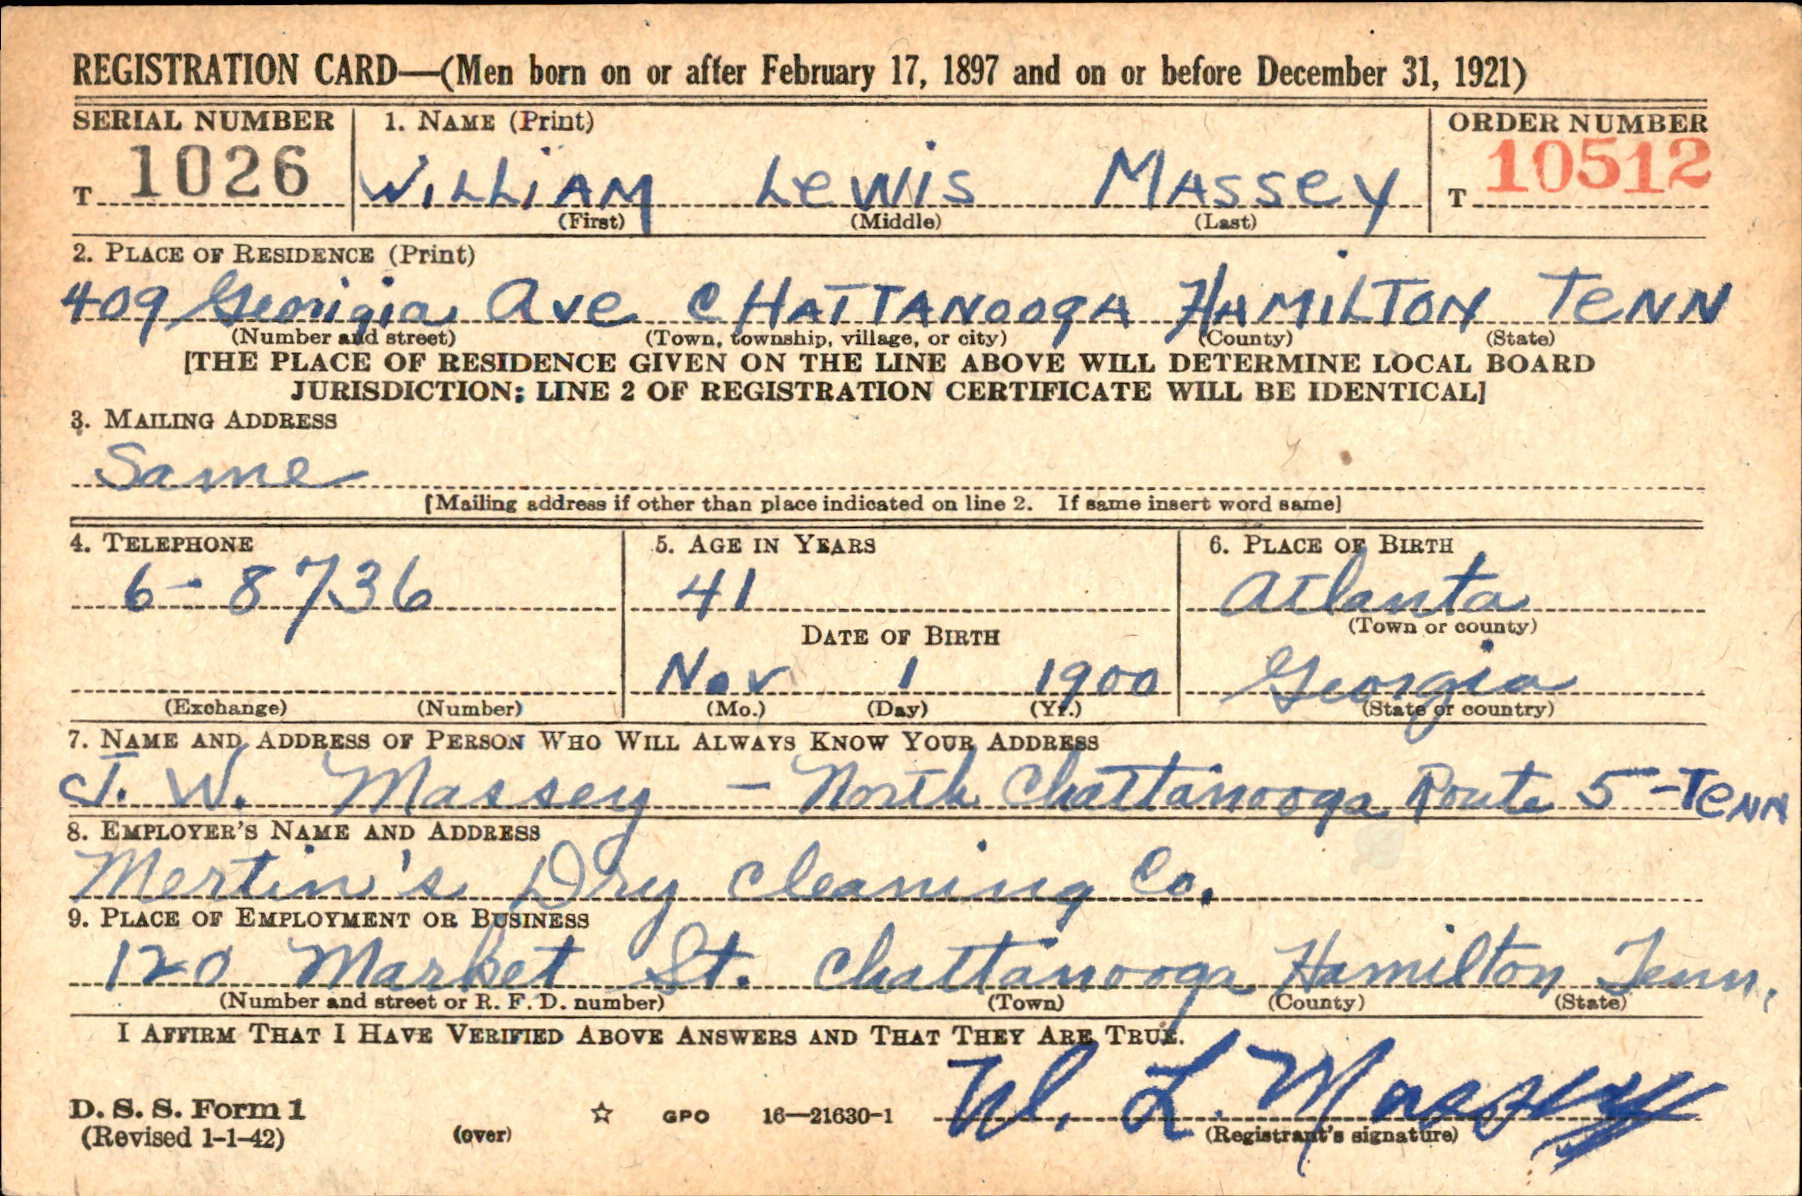 REGISTRATION CARD—(Men born on or after February 17, 1897 and on or before December 31, 1921)
SERIAL NUMBER 1. NAME (Print) ORDER NUMBER
T 1026 WILLIAM LEWIS MASSEY T 10512
(First) (Middle) (Last)
2. PLACE OF RESIDENCE (Print)
409 Georigia Ave CHATTANOOGA HAMILTON TENN
(Number and street) (Town, township, village, or city) (County) (State)
[THE PLACE OF RESIDENCE GIVEN ON THE LINE ABOVE WILL DETERMINE LOCAL BOARD
JURISDICTION; LINE 2 OF REGISTRATION CERTIFICATE WILL BE IDENTICAL]
3. MAILING ADDRESS
Same
[Mailing address if other than place indicated on line 2. If same insert word same]
4. TELEPHONE 5. AGE IN YEARS 6. PLACE OF BIRTH
6-8736 41 Atlanta
(Town or county)
DATE OF BIRTH
Nov 1 1900 Georgia
(Exchange) (Number) (Mo.) (Day) (Yr.) (State or country)
7. NAME AND ADDRESS OF PERSON WHO WILL ALWAYS KNOW YOUR ADDRESS
J. W. Massey - North Chattanooga Route 5-TENN
8. EMPLOYER'S NAME AND ADDRESS
Mertin's Dry Cleaning Co.
9. PLACE OF EMPLOYMENT OR BUSINESS
120 Market St. Chattanooga Hamilton Tenn.
(Number and street or R. F. D. number) (Town) (County) (State)
I AFFIRM THAT I HAVE VERIFIED ABOVE ANSWERS AND THAT THEY ARE TRUE.
W. L. Massey
D. S. S. Form 1
(Revised 1-1-42) (over) ☆ GPO 16—21630-1 (Registrant's signature)